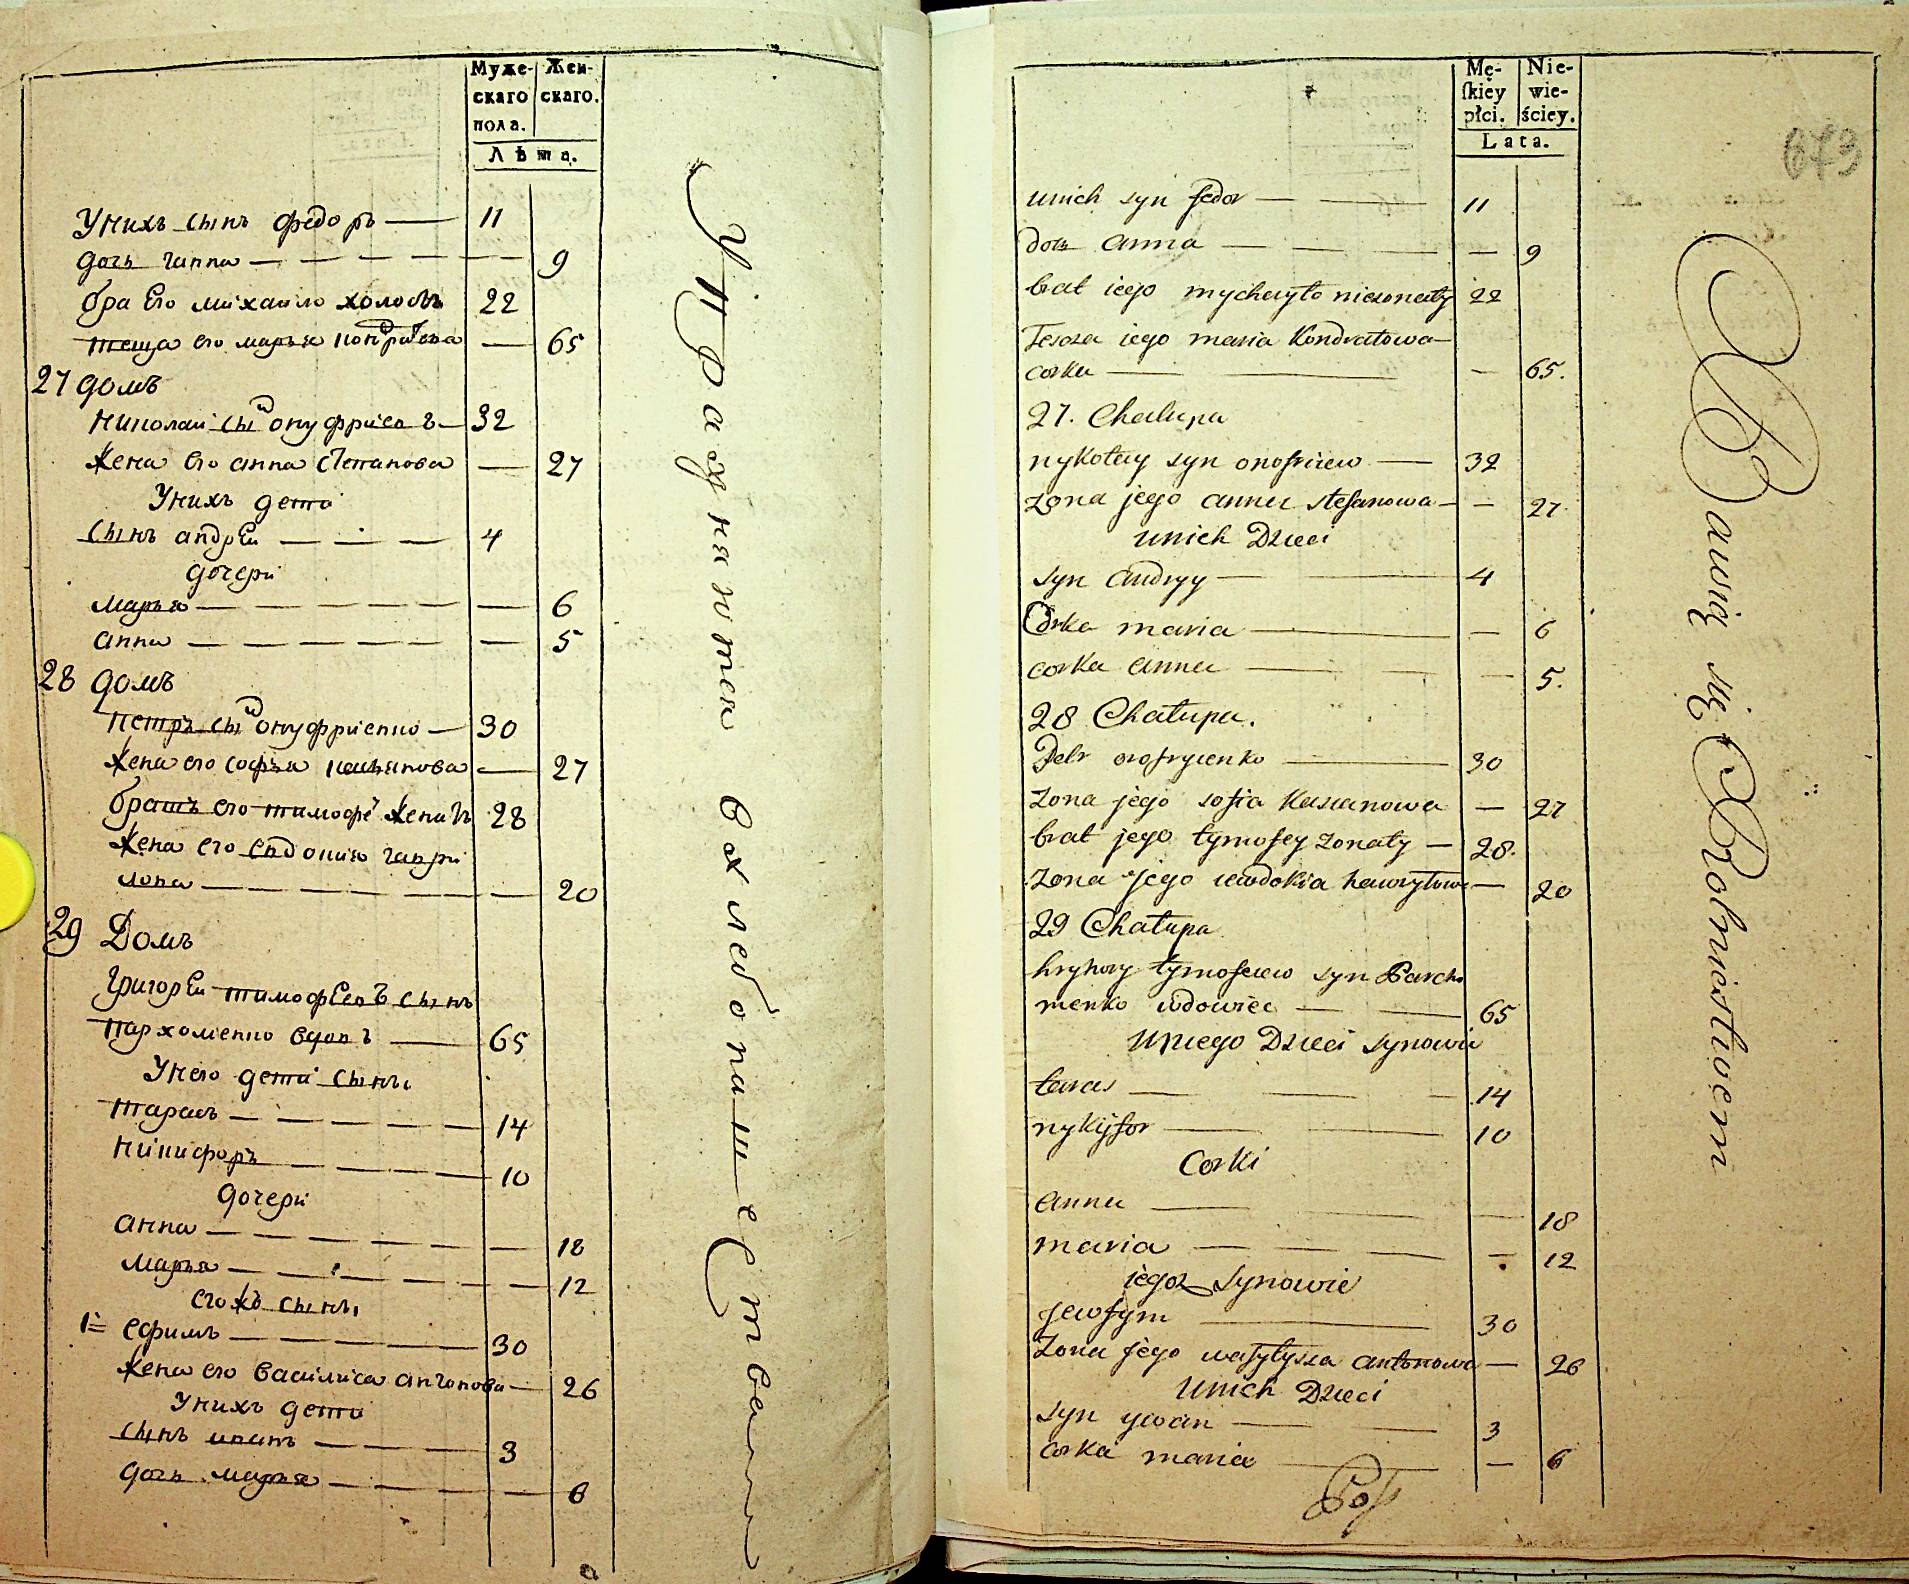 Муже-
скаго
пола.
Жен-
скаго.
Лѣта.
Унихъ сынъ федоръ — 11
дочь ганна — 9
бра Его михаило холостъ 22
теща его марья кондратева — 65
27 домъ
николаи сы онуфриевъ — 32
жена его анна степанова — 27
Унихъ дети
сынъ андрЕи — 4
дочери
марья — 6
анна — 5
28 домъ
петръ сы онуфриенко — 30
жена его софья касьянова — 27
братъ его тимофе женатъ 28
жена его евдокия гаври
лова — 20
29 Домъ
григорЕи тимофЕевъ сынъ
пархоменко вдовъ — 65
Унего дети сыны
тарасъ — 14
никифоръ — 10
дочери
анна — 18
марья — 12
егожъ сыны
1 ефимъ — 30
жена его василиса антонова — 26
Унихъ дети
сынъ иванъ — 3
дочь марья — 6
Упражняютея вохлебопашествами
673
Mę-
skiey
płci.
Nie-
wie-
ściey.
Lata.
unich syn fedor — 11
doch anna — 9
brat iego mychayło nieżonaty 22
Tescza iego maria Kondratowa —
corka — 65.
27. Chałupa
nykołay syn onofriiew — 32
żona jego anna stefanowa — 27
unich Dzieci
syn andryy — 4
Corka maria — 6
corka anna — 5.
28 Chałupa.
Petr onofryienko — 30
żona jego sofia Kasianowa — 27
brat jego tymofey żonaty — 28.
żona jego iewdokia hawryłowa — 20
29 Chałupa
hryhory tymofeiew syn Parcho
menko wdowiec — 65
Uniego Dzieci synowie
taras — 14
nykyfor — 10
Corki
anna — 18
maria — 12
iegoż synowie
jewfym — 30
żona jego wasyłyssa antonowa — 26
Unich Dzieci
syn ywan — 3
corka maria — 6
Bawią się Rolnictwem